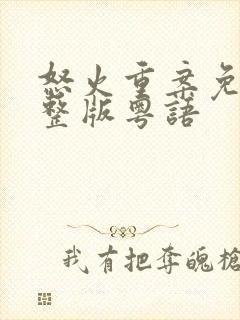 怒火重案免
整版粵語
我有把奪魄槍